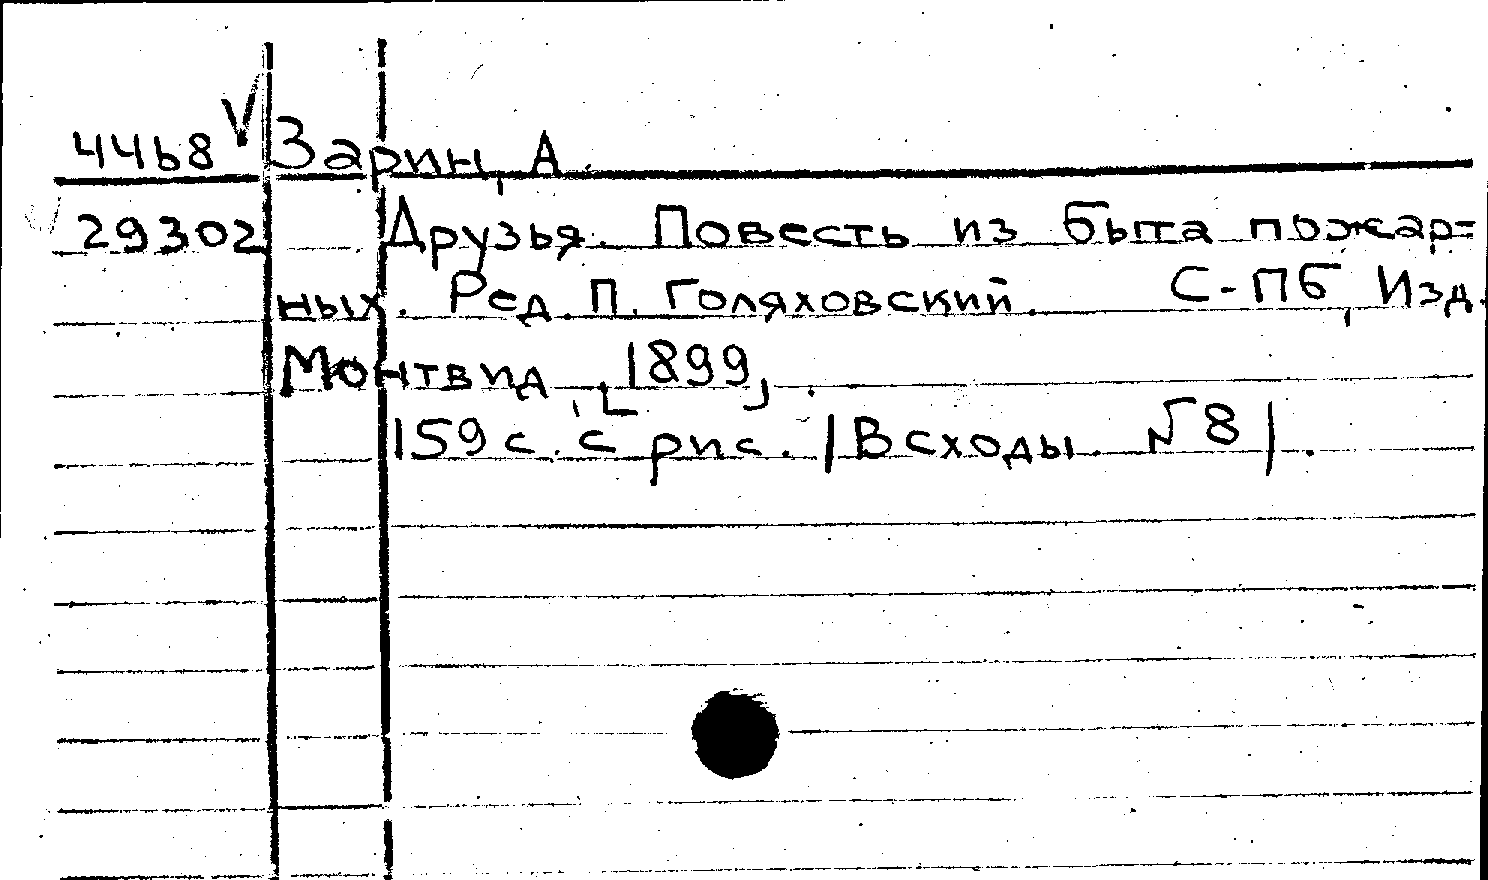 4468 V Зарин, А.
29302 Друзья. Повесть из быта пожар=
ных. Ред. П. Голяховский. С-ПБ, Изд.
Монтвид, [1899].
159 с. с рис. /Всходы. №8/.